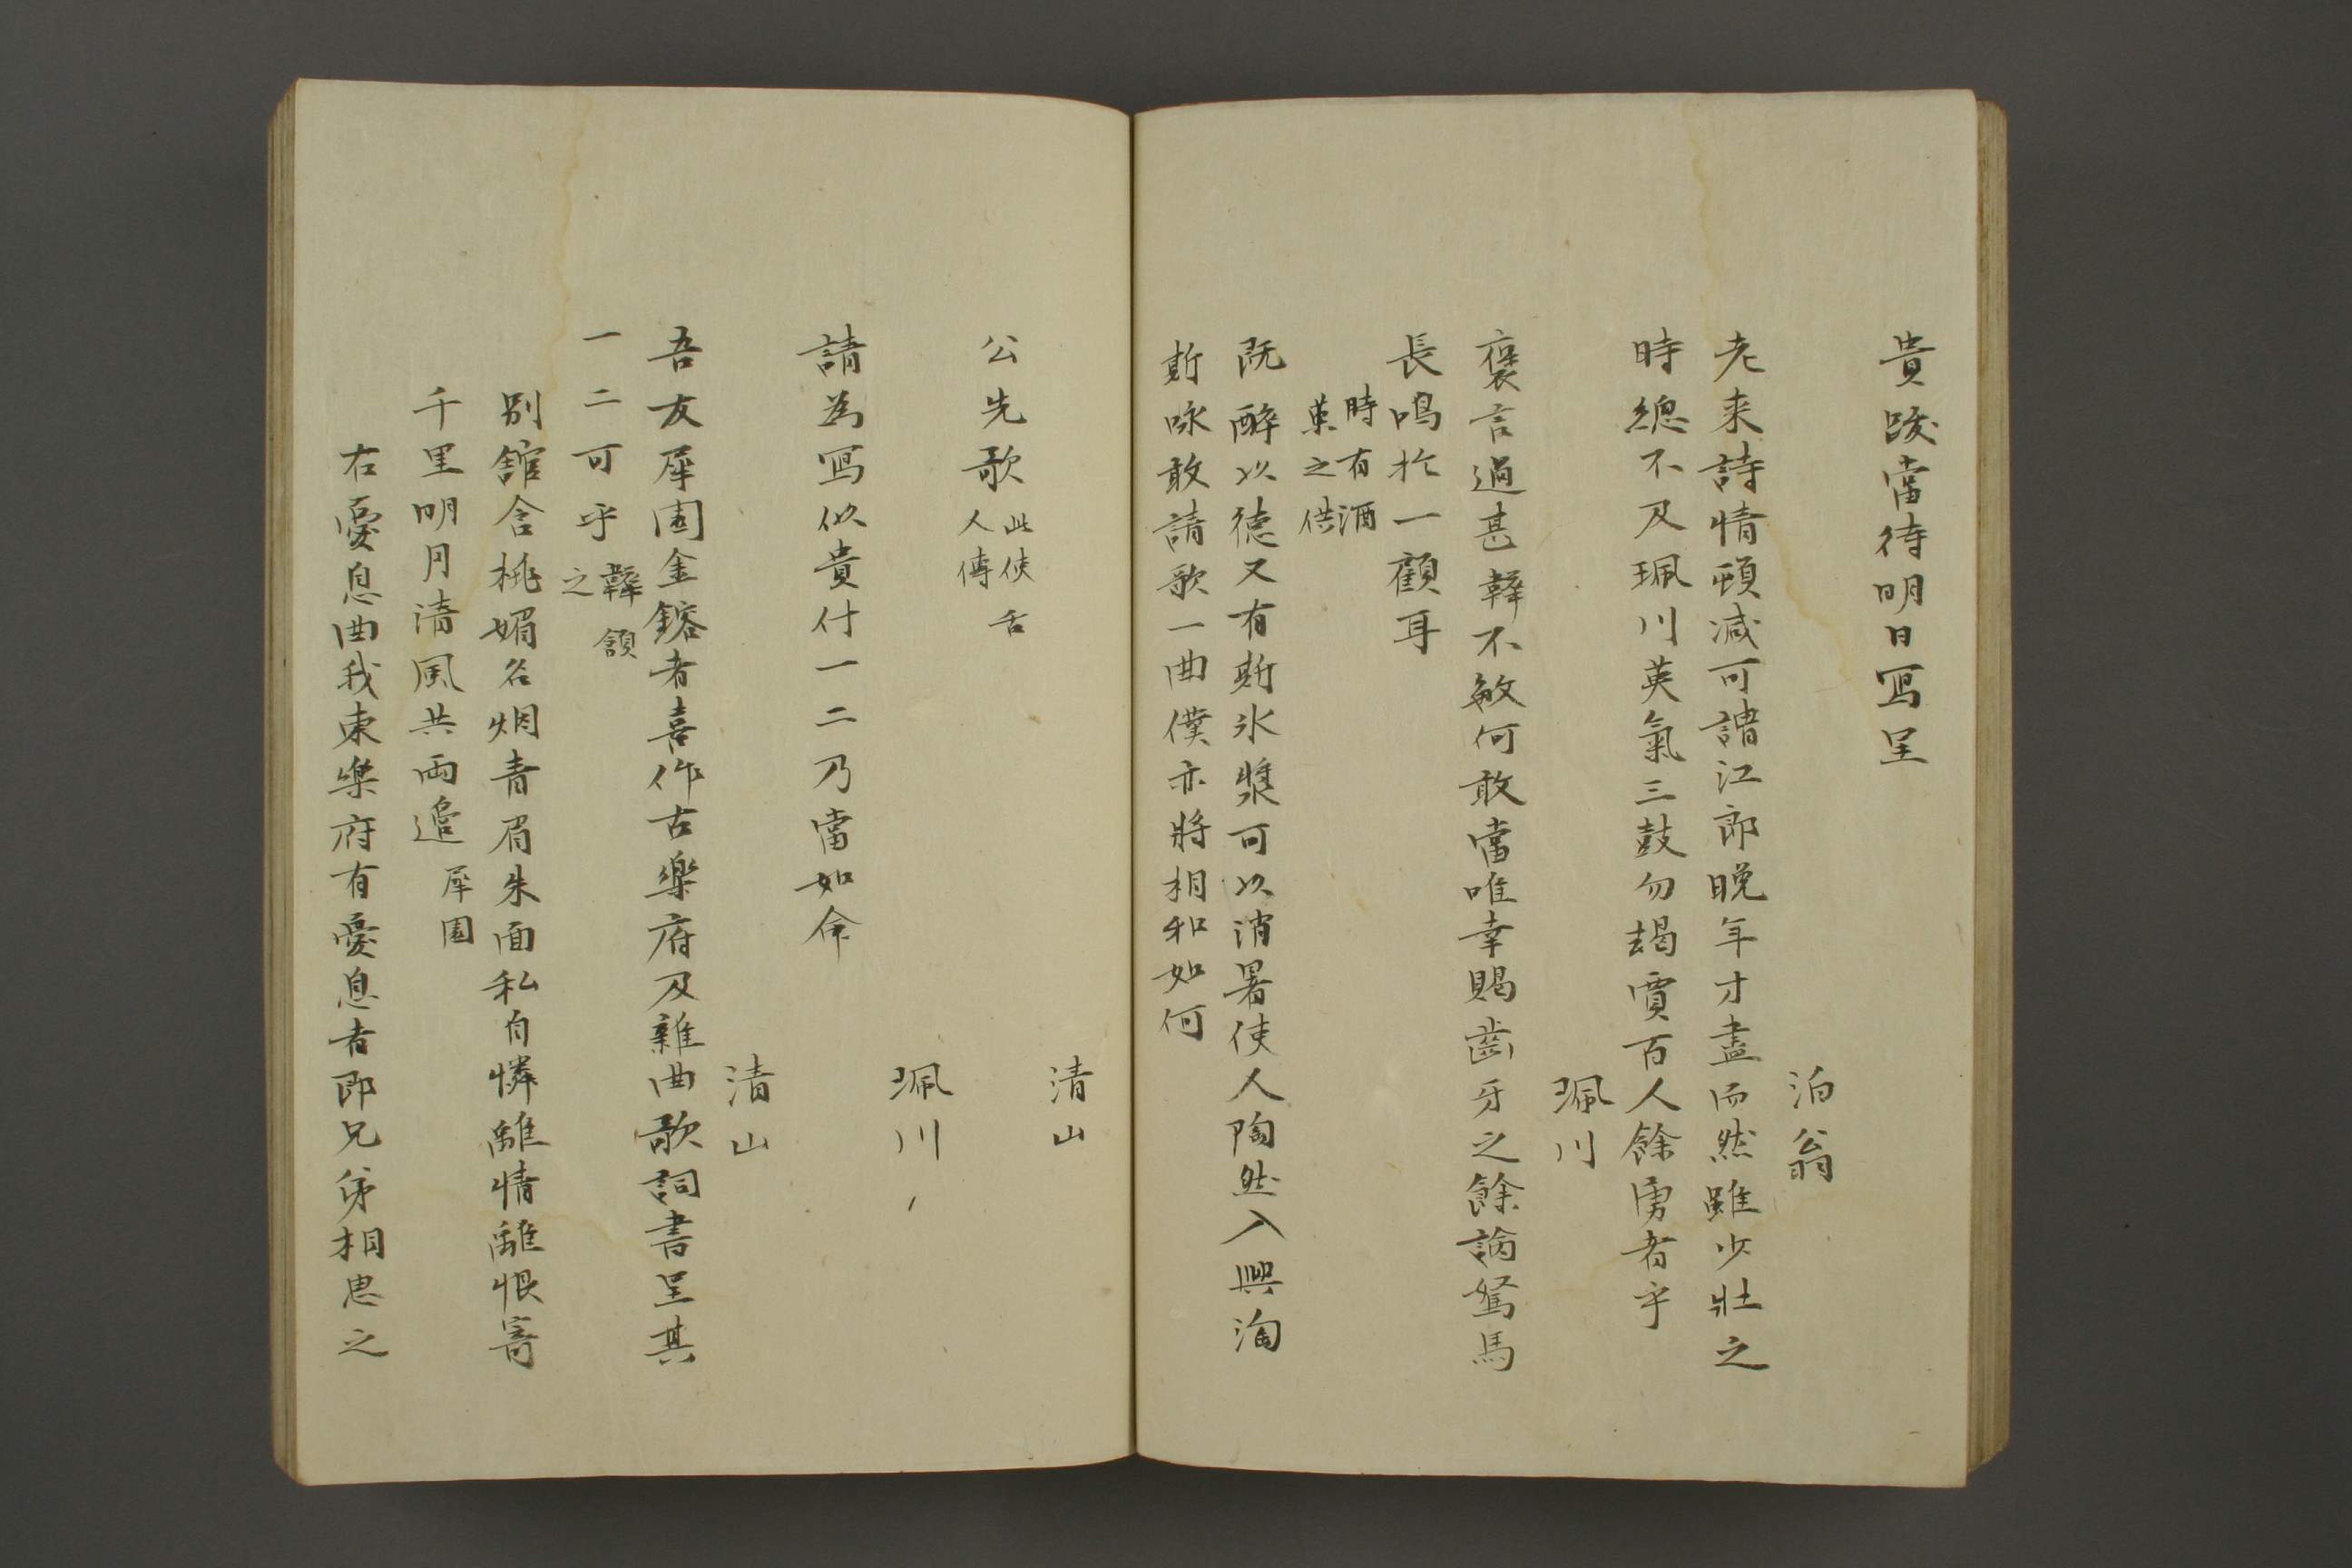 貴跋當待明日写呈
泊翁
老来詩情頓減可謂江郎晩年才盡而然雖少壯之
時總不及珮川英氣三鼓勿竭賈百人餘勇者乎
珮川
褒言過甚韓不敏何敢當唯幸賜齒牙之餘論駑馬
長鳴於一顧耳
時有酒
菓之供
既醉以德又有斯氷漿可以消暑使人陶然入興淘
斯咏敢請歌一曲僕亦將相和如何
清山
公先歌
此使舌
人傳
珮川
請為写似貴付一二乃當如命
清山
吾友犀園金鎔者喜作古樂府及雜曲歌詞書呈其
一二可乎
韓頷
之
別舘含桃媚名烟青眉朱面私自憐離情離恨寄
千里明月清風共兩邉
犀園
右憂息曲我東樂府有憂息者即兄弟相思之